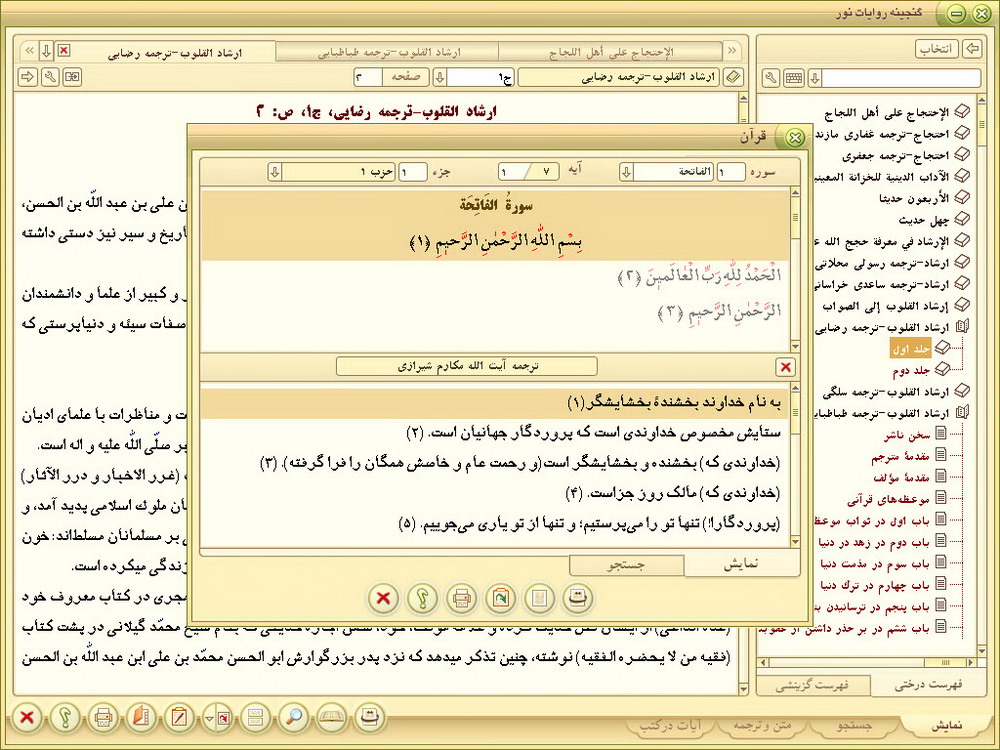 گنجینه روایات نور
انتخاب
الإحتجاج على أهل اللجاج
ارشاد القلوب-ترجمه طباطبایی
ارشاد القلوب-ترجمه رضایی
ارشاد القلوب-ترجمه رضایی
ج۱
صفحه
۲
ارشاد القلوب-ترجمه رضایی، ج۱، ص: ۲
الإحتجاج على أهل اللجاج
احتجاج-ترجمه غفاری مازند
احتجاج-ترجمه جعفری
الآداب الدينية للخزانة المعيني
الأربعون حديثا
چهل حدیث
الإرشاد في معرفة حجج الله ع
ارشاد-ترجمه رسولی محلاتی
ارشاد-ترجمه ساعدی خراسانی
إرشاد القلوب إلى الصواب
ارشاد القلوب-ترجمه رضایی
جلد اول
جلد دوم
ارشاد القلوب-ترجمه سلگی
ارشاد القلوب-ترجمه طباطبای
سخن ناشر
مقدمهٔ مترجم
مقدمهٔ مؤلف
موعظه‌های قرآنی
باب اول در ثواب موعظ
باب دوم در زهد در دنیا
باب سوم در مذمت دنیا
باب چهارم در ترك دنیا
باب پنجم در ترسانیدن بن
باب ششم در بر حذر داشتن از عقوبت
فهرست درختی
فهرست گزینشی
قرآن
سوره
۱
الفاتحة
آیه
۷
۱
جزء
۱
حزب ۱
سورةُ الفَاتِحَة
بِسْمِ اللَّهِ الرَّحْمٰنِ الرَّحِيمِ (۱)
الْحَمْدُ لِلَّهِ رَبِّ الْعَالَمِينَ (۲)
الرَّحْمٰنِ الرَّحِيمِ (۳)
ترجمه آیت الله مکارم شیرازی
به نام خداوند بخشندهٔ بخشایشگر(۱)
ستایش مخصوص خداوندی است که پروردگار جهانیان است. (۲)
(خداوندی که) بخشنده و بخشایشگر است(و رحمت عام و خاصش همگان را فرا گرفته). (۳)
(خداوندی که) مالک روز جزاست. (۴)
(پروردگارا!) تنها تو را می‌پرستیم؛ و تنها از تو یاری می‌جوییم. (۵)
نمایش
جستجو
ن علی بن عبد اللّه بن الحسن،
تأریخ و سیر نیز دستی داشته
و کبیر از علما و دانشمندان
صفات سیئه و دنیاپرستی که
ت و مناظرات با علمای ادیان
بر صلّی اللّه علیه و اله است.
(غرر الاخبار و درر الآثار)
ان ملوك اسلامی پدید آمد، و
بر مسلمانان مسلط‌اند: خون
زندگی میکرده است.
جری در کتاب معروف خود
(فقیه من لا یحضره الفقیه) نوشته، چنین تذکر میدهد که نزد پدر بزرگوارش ابو الحسن محمّد بن علی ابن عبد اللّه بن الحسن
نمایش
جستجو
متن و ترجمه
آیات در کتب